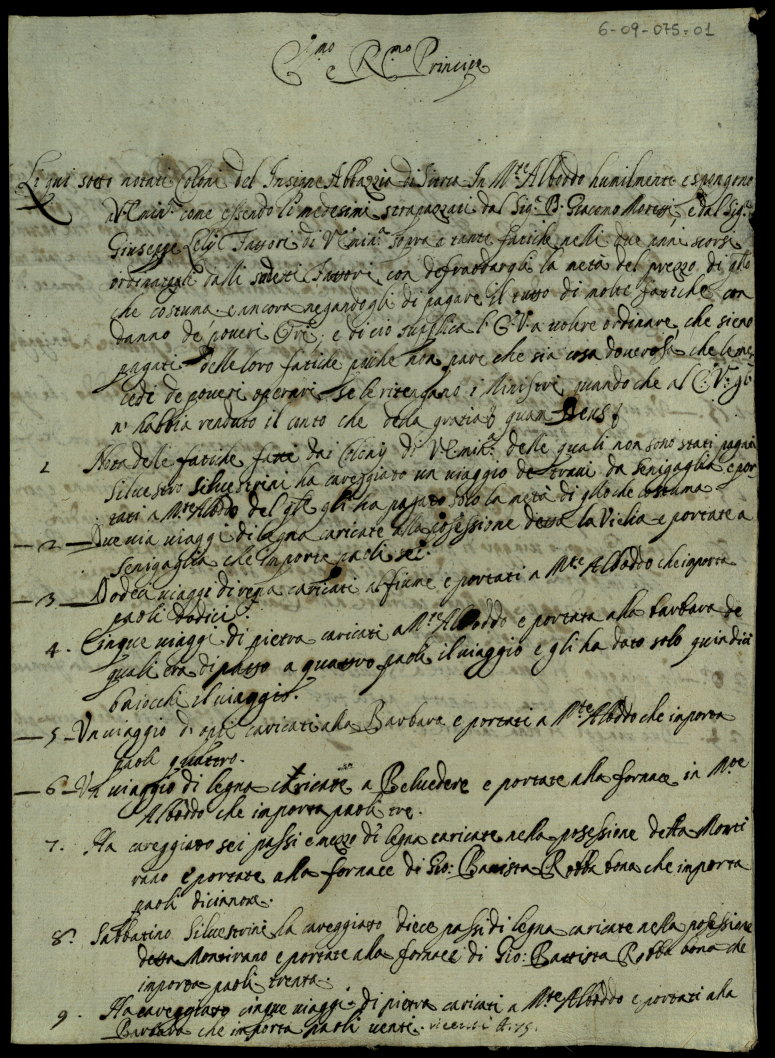 6-09-075-01
E.mo e R.mo Principe
Li qui sotto notati Coloni del Insigne Abbazzia di Sitria In M.te Alboddo humilmente espongono
a V. Emin.a come essendo li medesimi strapazzati dal Sig.r B. Giacomo Moresi, e dal Sig.r
Giuseppe Lelij Fattori di V. Emin.a sopra a tante fatiche nelli due anni scorsi
ordinategli dalli sudetti Fattori con defraudargli la metà del prezzo di q.llo
che costuma e ancora negandogli di pagare il tutto di molte fatiche con
danno de poveri Or.i e di ciò supplica l'E.V. a volere ordinare, che sieno
pagati delle loro fatiche poiche non pare che sia cosa doverosa che le mer
cedi de poveri operari se le ritengano i Ministri quando che al E.V. gl
n' habbia renduto il conto che della gratia quam Deus
1 Nota delle fatiche fatte dai Colonij di V. Emin.a delle quali non sono stati pagati
Silvestro Silvestrini ha careggiato un viaggio de travi da Senigaglia e por
tati a M.te Alboddo del q.le gli ha pagato solo la metà di q.llo che costuma
2 Due viaggi di legna caricate alla posessione detta la Viglia e portate a
Senigaglia che importa paoli sei.
3 Dodeci viaggi di rena caricati al fiume e portati a M.te Alboddo che importa
paoli dodici.
4. Cinque viaggi di pietra caricati a M.te Alboddo e portata alla barbara de
quali era di patto a quattro paoli il viaggio e gli ha dato solo quindici
baiocchi il viaggio.
5 Un viaggio di opij caricati alla Barbara e portati a M.te Alboddo che importa
paoli quattro.
6 Un viaggio di legna caricate a Belvedere e portate alla fornace in M.te
Alboddo che importa paoli tre.
7. Ha careggiato sei passi e mezzo di legna caricate nella posessione detta Monti
rano e portate alla fornace di Gio: Battista Robba bona che importa
paoli dicianove.
8. Sabbatino Silvestrini ha careggiato diece passi di legna caricate nella posessione
detta Montirano e portate alla fornace di Gio: Battista Robba bona che
importa paoli trenta.
9. Ha careggiato cinque viaggi di pietra caricati a M.te Alboddo e portati alla
Barbara che importa paoli venti.